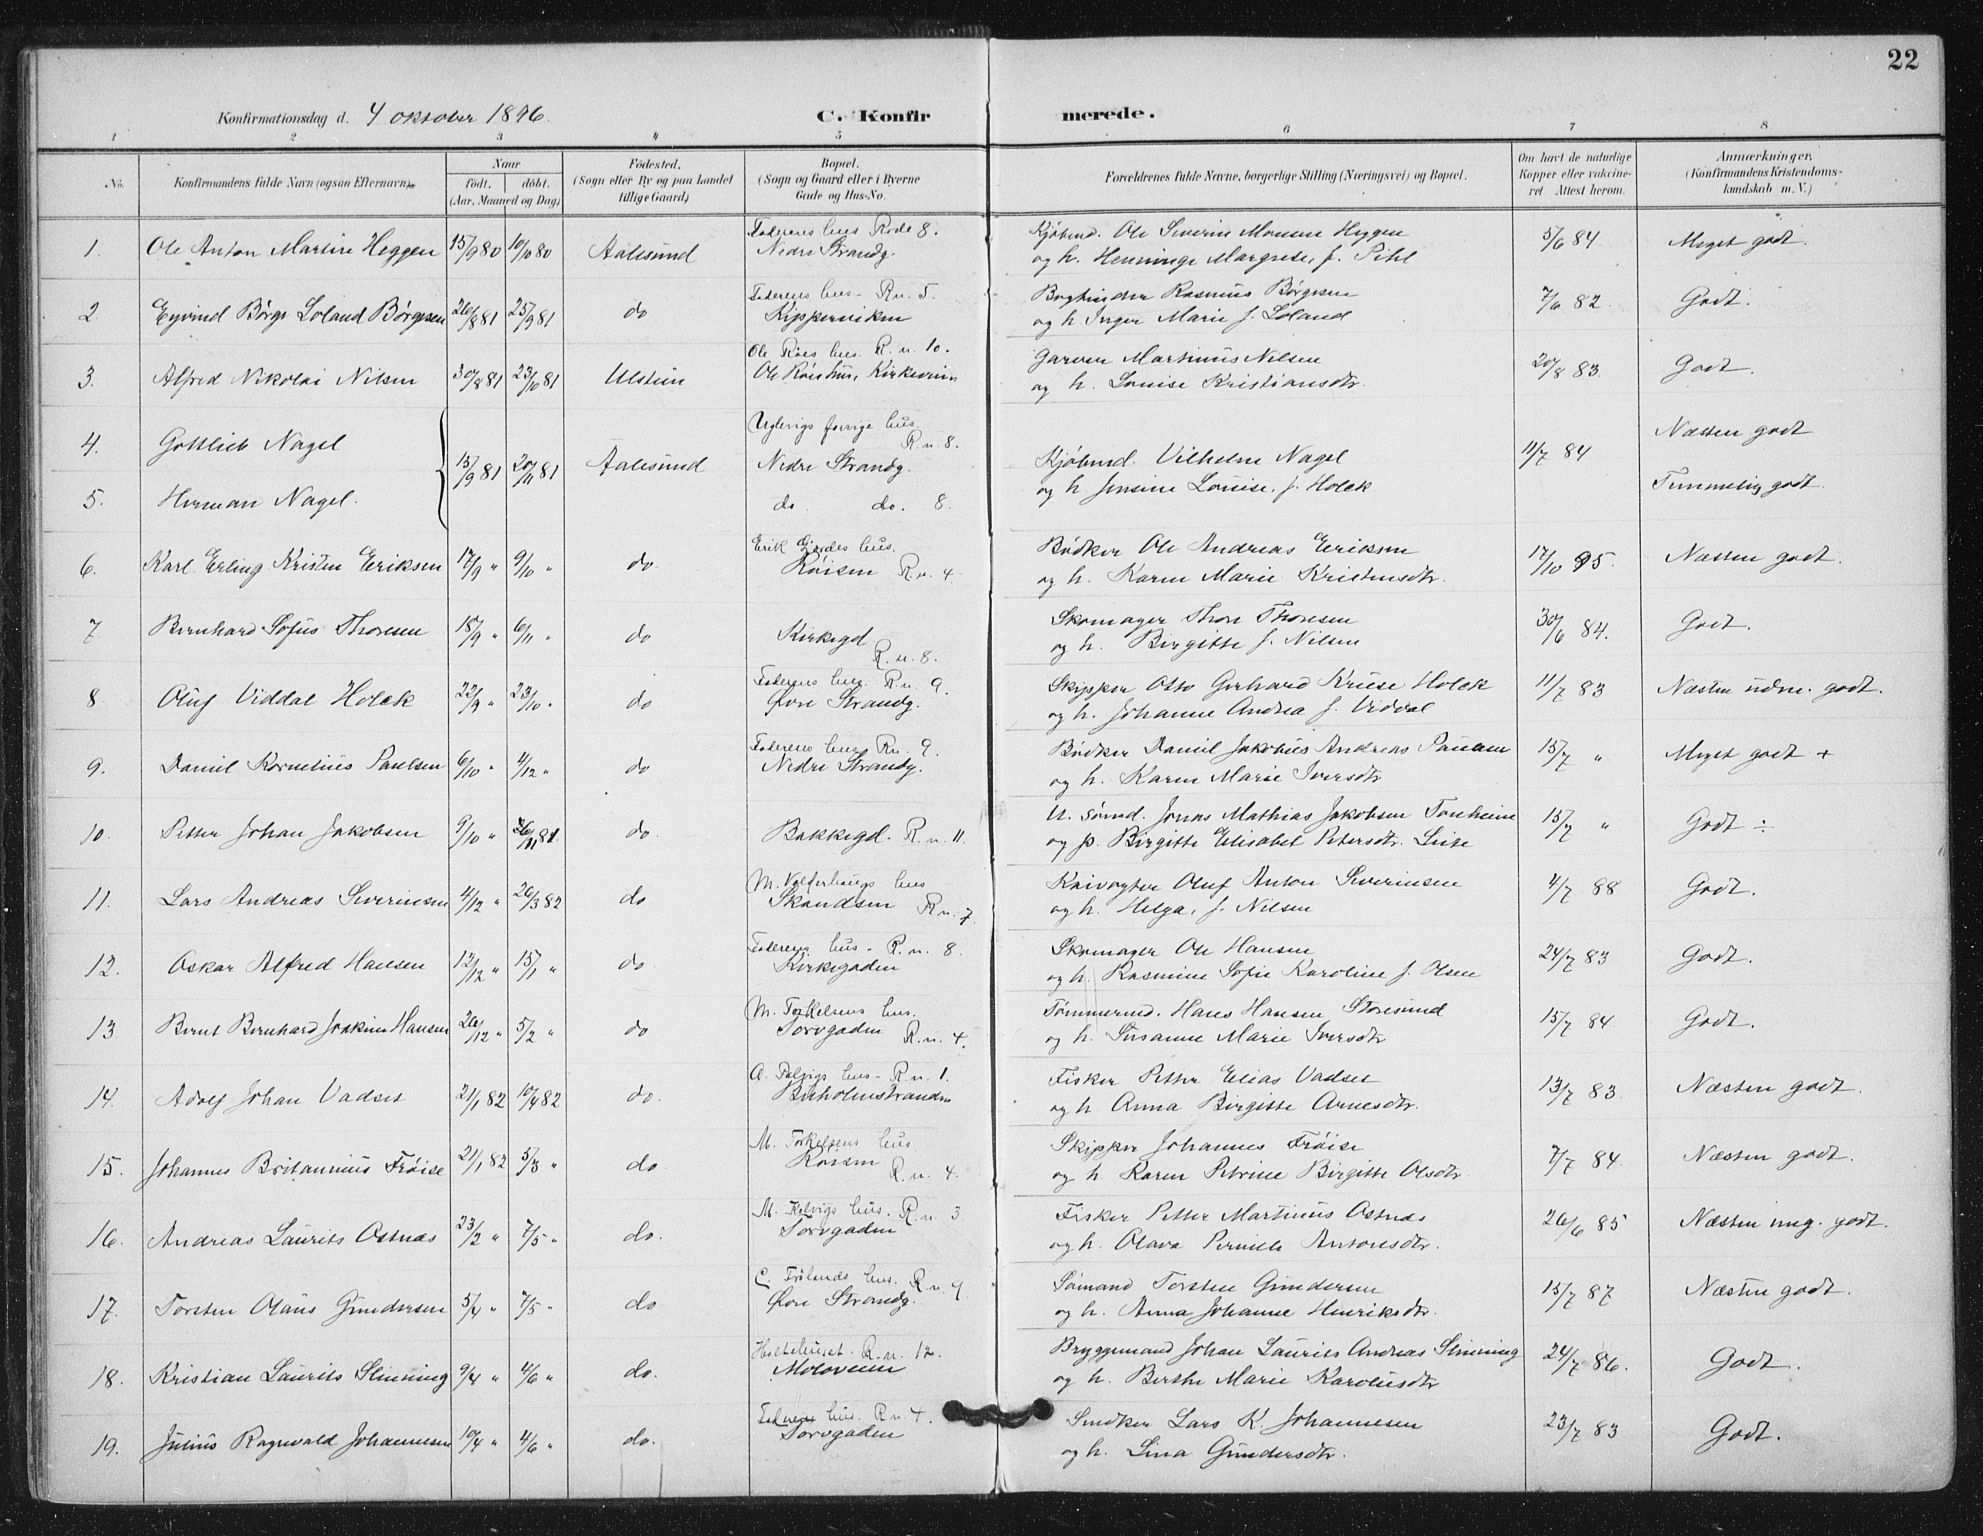 22
Konfirmationsdag d. 4 oktober 1896.
C. Konfirmerede.
1 2 3 4 5 6 7 8
No.
Konfirmandens fulde Navn (ogsaa Efternavn).
Naar
født. døbt.
(Aar, Maaned og Dag)
Fødested.
(Sogn eller By og paa Landet
tillige Gaard)
Bopæl.
(Sogn og Gaard eller i Byerne
Gade og Hus-No.
Forældrenes fulde Navne, borgerlige Stilling (Næringsvei) og Bopæl.
Om havt de naturlige
Kopper eller vakcine-
ret Attest herom.
Anmærkninger.
(Konfirmandens Kristendoms-
kundskab m. V.)
Faderens hus Rode 8. Kjøbmd. Ole Severin Monsene Heggen
1. Ole Anton Martin Heggen 15/9 80 10/10 80 Aalesund Nedre Strandg. og h. Henninge Margrete, f. Pihl 5/6 84 Meget godt.
Faderens hus - Rn. 5. Bogbinder Rasmus Børgesen
2 Eyvind Børge Loland Børgesen 26/8 81 25/9 81 do Kipperviken og h Inger Marie f. Loland 7/6 82 Godt.
Ole Røes hus. R. n. 10. Garver Martinus Nilsen
3. Alfred Nikolai Nilsen 30/8 81 23/10 81 Ulstein Ole Røishus, Kirkeveien og h. Louise Kristiansdtr. 20/8 83. Godt.
Uglevigs forrige hus
R. n. 8.
4. Gottlieb Nagel 15/9 81 20/11 81 Aalesund Nedre Strandg. Kjøbmd. Vilhelm Nagel 11/7 84 Næsten godt
5. Herman Nagel. do. do. 8. og h. Jensine Louise, f. Holck Temmelig godt.
Erik Gjerdes hus. Bødker Ole Andreas Eriksen
6. Karl Erling Kristen Eriksen 17/9 " 9/10 " do. Røisen R. n. 4. og h. Karen Marie Kristensdtr. 17/10 95. Næsten godt.
Skomager Thore Thoresen
7 Bernhard Sofus Thoresen 18/9 " 6/11 " do Kirkegd R. n. 8. og h. Birgitte f. Nilsen 30/6 84. Godt.
Faderens hus. R. n. 9. Skipper Otto Gerhard Kruse Holck
8 Oluf Viddal Holck 22/9 " 23/10 " do Øvre Strandg. og h. Johanne Andrea f. Viddal 11/7 83 Næsten udm. godt.
Faderens hus Rn. 9. Bødker Daniel Jakobus Andreas Paulsen
9. Daniel Kornelius Paulsen 6/10 " 4/12 " do Nedre Strandg. og h. Karen Marie Iversdtr 15/7 " Meget godt +
U. sømd. Jonas Mathias Jakobsen Tonheim
10. Petter Johan Jakobsen 9/10 " 81. do. Bakkegd. R. n. 11. og p. Birgitte Elisabet Petersdtr. Leite 15/7 " Godt ÷
M. Valderhaugs hus Kaivogter Oluf Anton Severinsen
11. Lars Andreas Severinsen 4/12 " 26/3 82 do Skandsen R n. 7 og h. Helga, f. Nilsen 4/7 88 Godt.
Faderens hus. R. n. 8 Skomager Ole Hansen
12. Oskar Alfred Hansen 12/12 " 15/1 " do Kirkegaden og h. Rasmine Sofie Karoline f. Olsen 24/7 83 Godt.
M. Torkelsens hus. Tømmermd. Hans Hansen Storesund
13 Bernt Bernhard Joakim Hansen 26/12 " 5/2 " do Torvgaden R. n. 4. og h. Susanne Marie Iversdtr 15/7 84 Godt.
hus - R. n 1. Fisker Petter Elias Vadset
14. Adolf Johan Vadset 21/1 82 10/4 82 do. Buholmstranden og h Anna Birgitte Arnesdtr. 13/7 83. Næsten godt.
M. Torkelsens hus Skipper Johannes Frøise
15. Johannes Britannius Frøise 21/1 82 5/3 " do Røisen R. n. 4. og h Karen Petrine Birgitte Olsdtr. 7/7 84. Næsten godt.
M. Kalvigs hus. R. n 3 Fisker Petter Martinus Ostnæs
16. Andreas Laurits Ostnæs 23/2 " 7/5 " do. Torvgaden og h. Olava Pernille Antonsdtr. 26/6 85 Næsten meg. godt.
C. Frølands hus. R n 4 Sømand Torsten Gundersen
17. Torsten Olaus Gundersen 5/4 " 7/5 " do Øvre Strandg. og h. Anna Johanne Henriksdtr. 15/7 87 Næsten godt.
Holtehuset. R. n. 12. Bryggemand Johan Laurits Andreas Slinning
18. Kristian Laurits Slinning 9/4 " 4/6 " do. Moloveien og h. Berthe Marie Karolusdtr 24/7 86. Godt.
Faderens hus. R n 4. Snedker Lars K. Johannesen
19. Julius Ragnvald Johannesen 10/4 " 4/6 " do. Torvgaden og h. Lina Gundersdtr. 23/7 83 Godt.